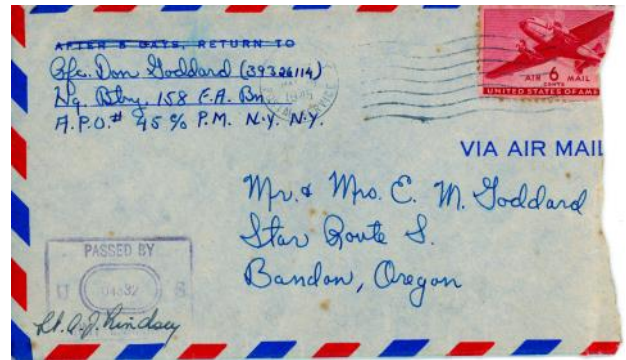 AFTER 5 DAYS, RETURN TO
Pfc. Don Goddard (39326114)
Hq. Btry. 158 F.A. Bn.
A.P.O.# 45 c/o P.M. N.Y. N.Y.
1945
AIR 6 MAIL
CENTS
UNITED STATES OF AME
VIA AIR MAIL
Mr. & Mrs. E. M. Goddard
Star Route S.
Bandon, Oregon
PASSED BY
U S
Lt. A. J. Lindsey